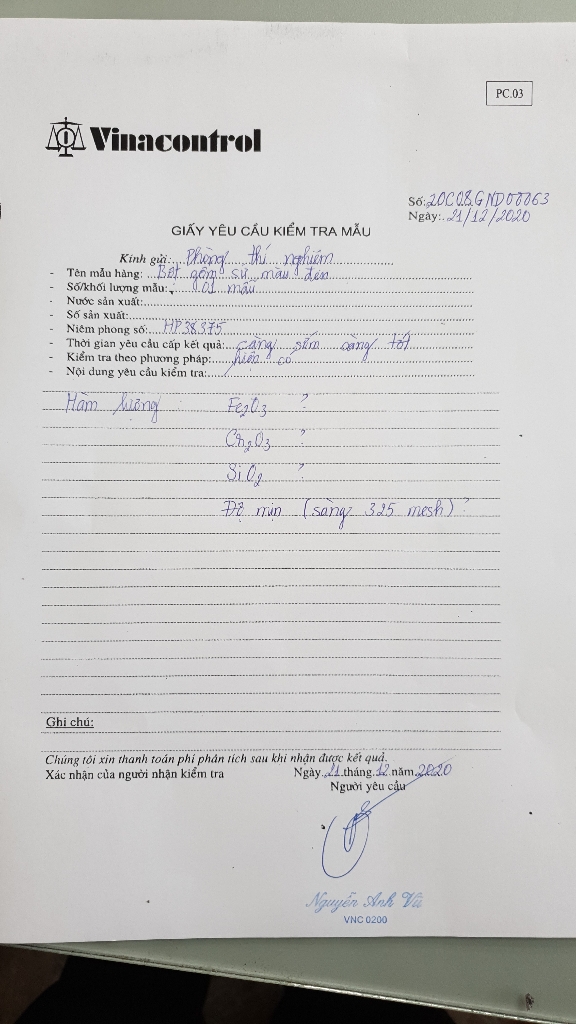 PC.03
Vinacontrol
Số: 20C08GND00063
Ngày: 21/12/2020
GIẤY YÊU CẦU KIỂM TRA MẪU
Kính gửi: Phòng thí nghiệm
- Tên mẫu hàng: Bột gốm sứ màu đen
- Số/khối lượng mẫu: 01 mẫu
- Nước sản xuất:
- Số sản xuất:
- Niêm phong số: HP38375
- Thời gian yêu cầu cấp kết quả: càng sớm càng tốt
- Kiểm tra theo phương pháp: hiện có
- Nội dung yêu cầu kiểm tra:
Hàm lượng Fe₂O₃ ?
Cr₂O₃ ?
SiO₂ ?
Độ mịn (sàng 325 mesh) ?
Ghi chú:
Chúng tôi xin thanh toán phí phân tích sau khi nhận được kết quả.
Xác nhận của người nhận kiểm tra Ngày 21 tháng 12 năm 2020
Người yêu cầu
Nguyễn Anh Vũ
VNC 0200